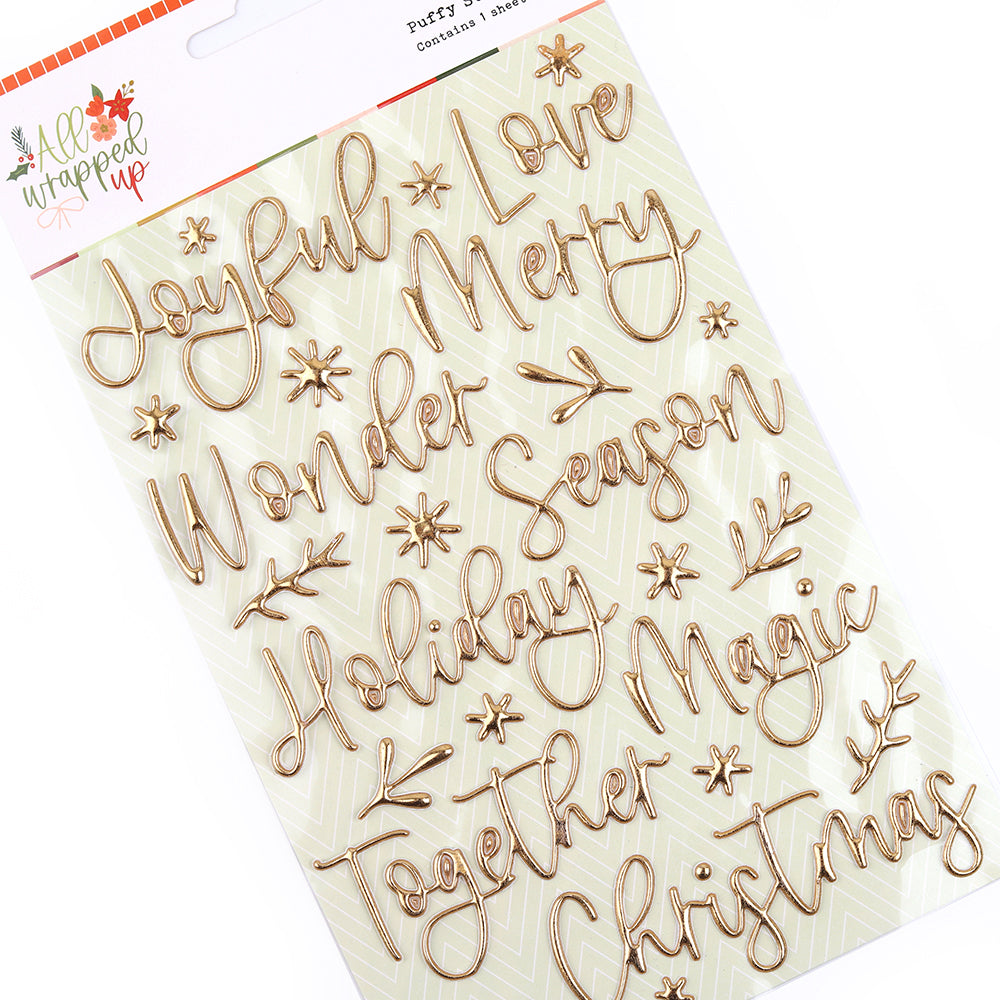 Puffy
Contains 1 sheet
All
wrapped
up
Love
Joyful
Merry
Wonder
Season
Holiday
Magic
Together
Christmas